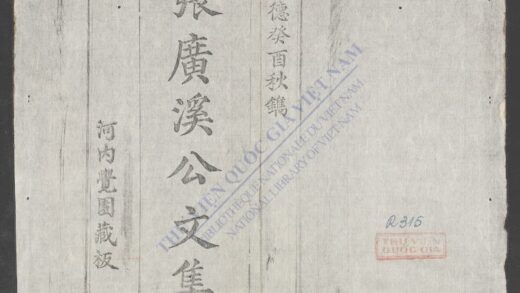 德癸酉秋鐫
張廣溪公文集
河内覺園藏板
THƯ VIỆN QUỐC GIA VIỆT NAM
BIBLIOTHÈQUE NATIONALE DU VIETNAM
NATIONAL LIBRARY OF VIETNAM
R 315
THƯ VIỆN
QUỐC GIA